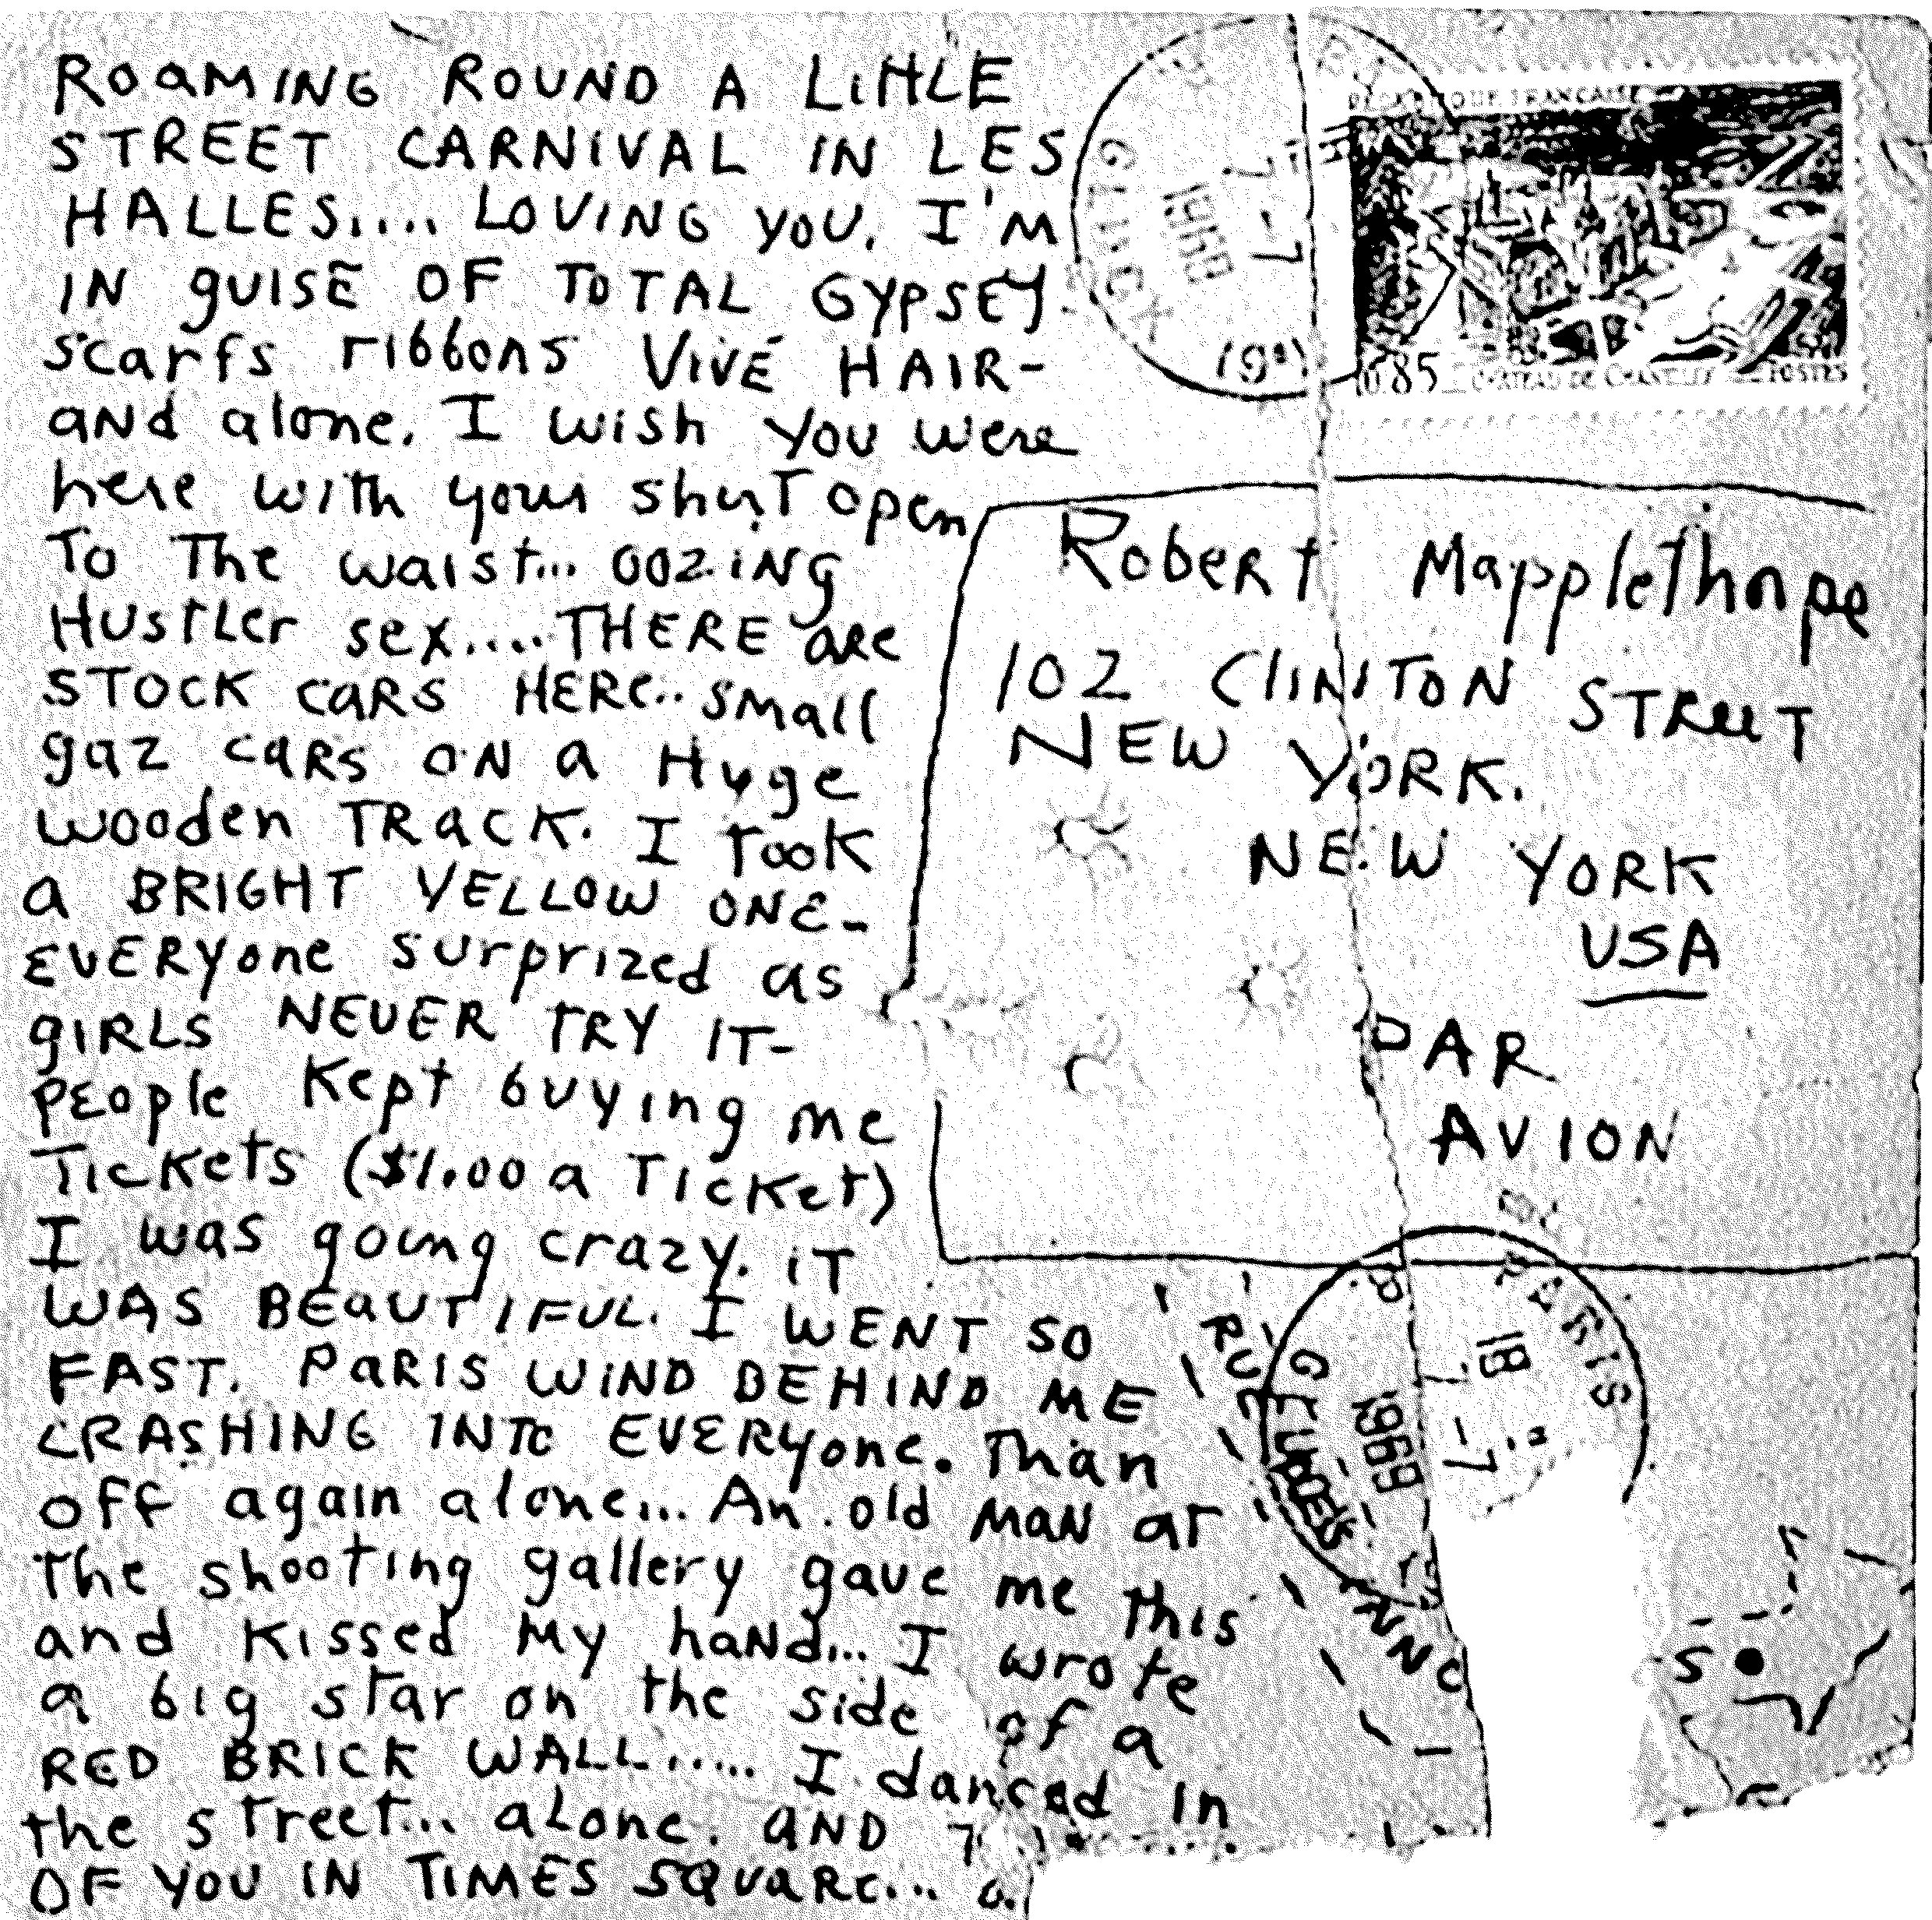 ROAMING ROUND A LittLE
STREET CARNIVAL IN LES
HALLES.... LOVING YOU. I'M
IN GUISE OF TOTAL GYPSEY
scarfs ribbons VIVE HAIR-
and alone. I wish you were
here with your shirt open
To The waist... oozing
HUSTLER sex.... THERE are
STOCK CARS HERE.. small
gaz cars on a Huge
wooden TRACK. I Took
a BRIGHT YELLOW ONE-
EVERYone surprized as
gIRLS NEVER TRY IT-
People Kept buying me
Tickets ($1.00 a Ticket)
I was going crazy. iT
WAS BEAUTIFUL. I WENT SO
FAST. PARIS WIND BEHIND ME
CRASHING INTO EVERYone. Than
off again alone... An old MAN at
the shooting gallery gave me this
and kissed my hand... I wrote
a big star on the side of a
RED BRICK WALL..... I danced in
the street... alone. AND
OF YOU IN TIMES SQUARE...
REPUBLIQUE FRANCAISE
0,85 CHATEAU DE CHANTILLY POSTES
1969
Robert Mapplethorpe
102 CLINTON STREET
NEW YORK.
NEW YORK
USA
PAR
AVION
PARIS
18
1969